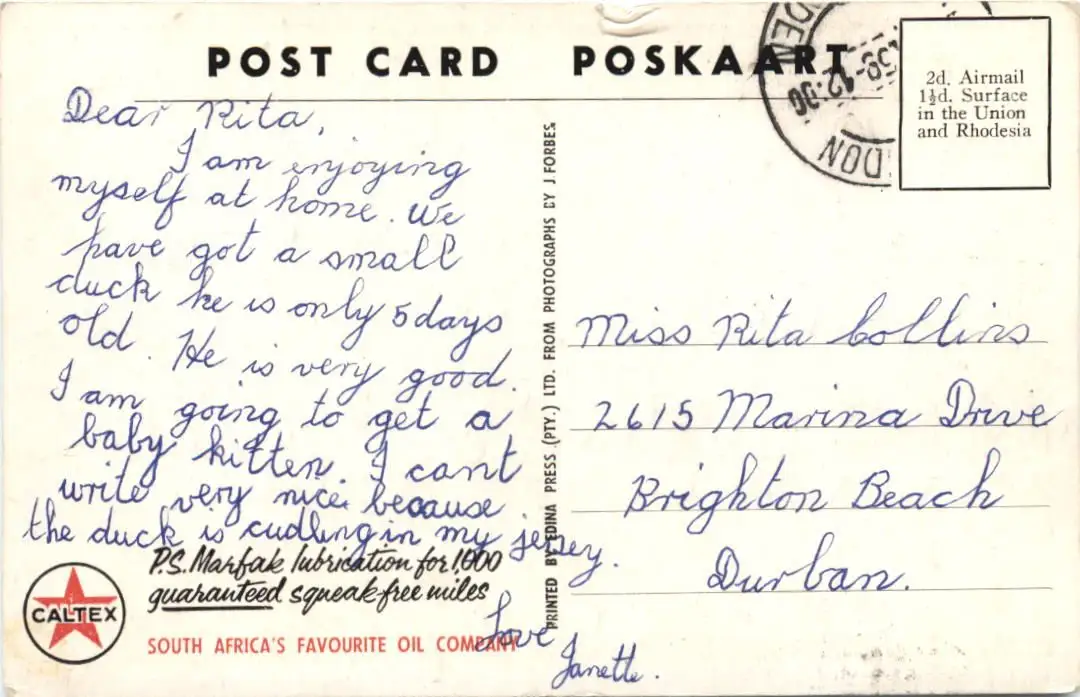 POST CARD POSKAART
2d. Airmail
1½d. Surface
in the Union
and Rhodesia
12:00
Dear Rita,
I am enjoying
myself at home. We
have got a small
duck he is only 5 days
old. He is very good.
I am going to get a
baby kitten. I cant
write very nice because
the duck is cudling in my jersey.
Love
Janette.
P.S. Marfak lubrication for 1,000
guaranteed squeak-free miles
CALTEX
SOUTH AFRICA'S FAVOURITE OIL COMPANY
PRINTED BY EDINA PRESS (PTY.) LTD. FROM PHOTOGRAPHS BY J. FORBES
Miss Rita Collins
2615 Marina Drive
Brighton Beach
Durban.